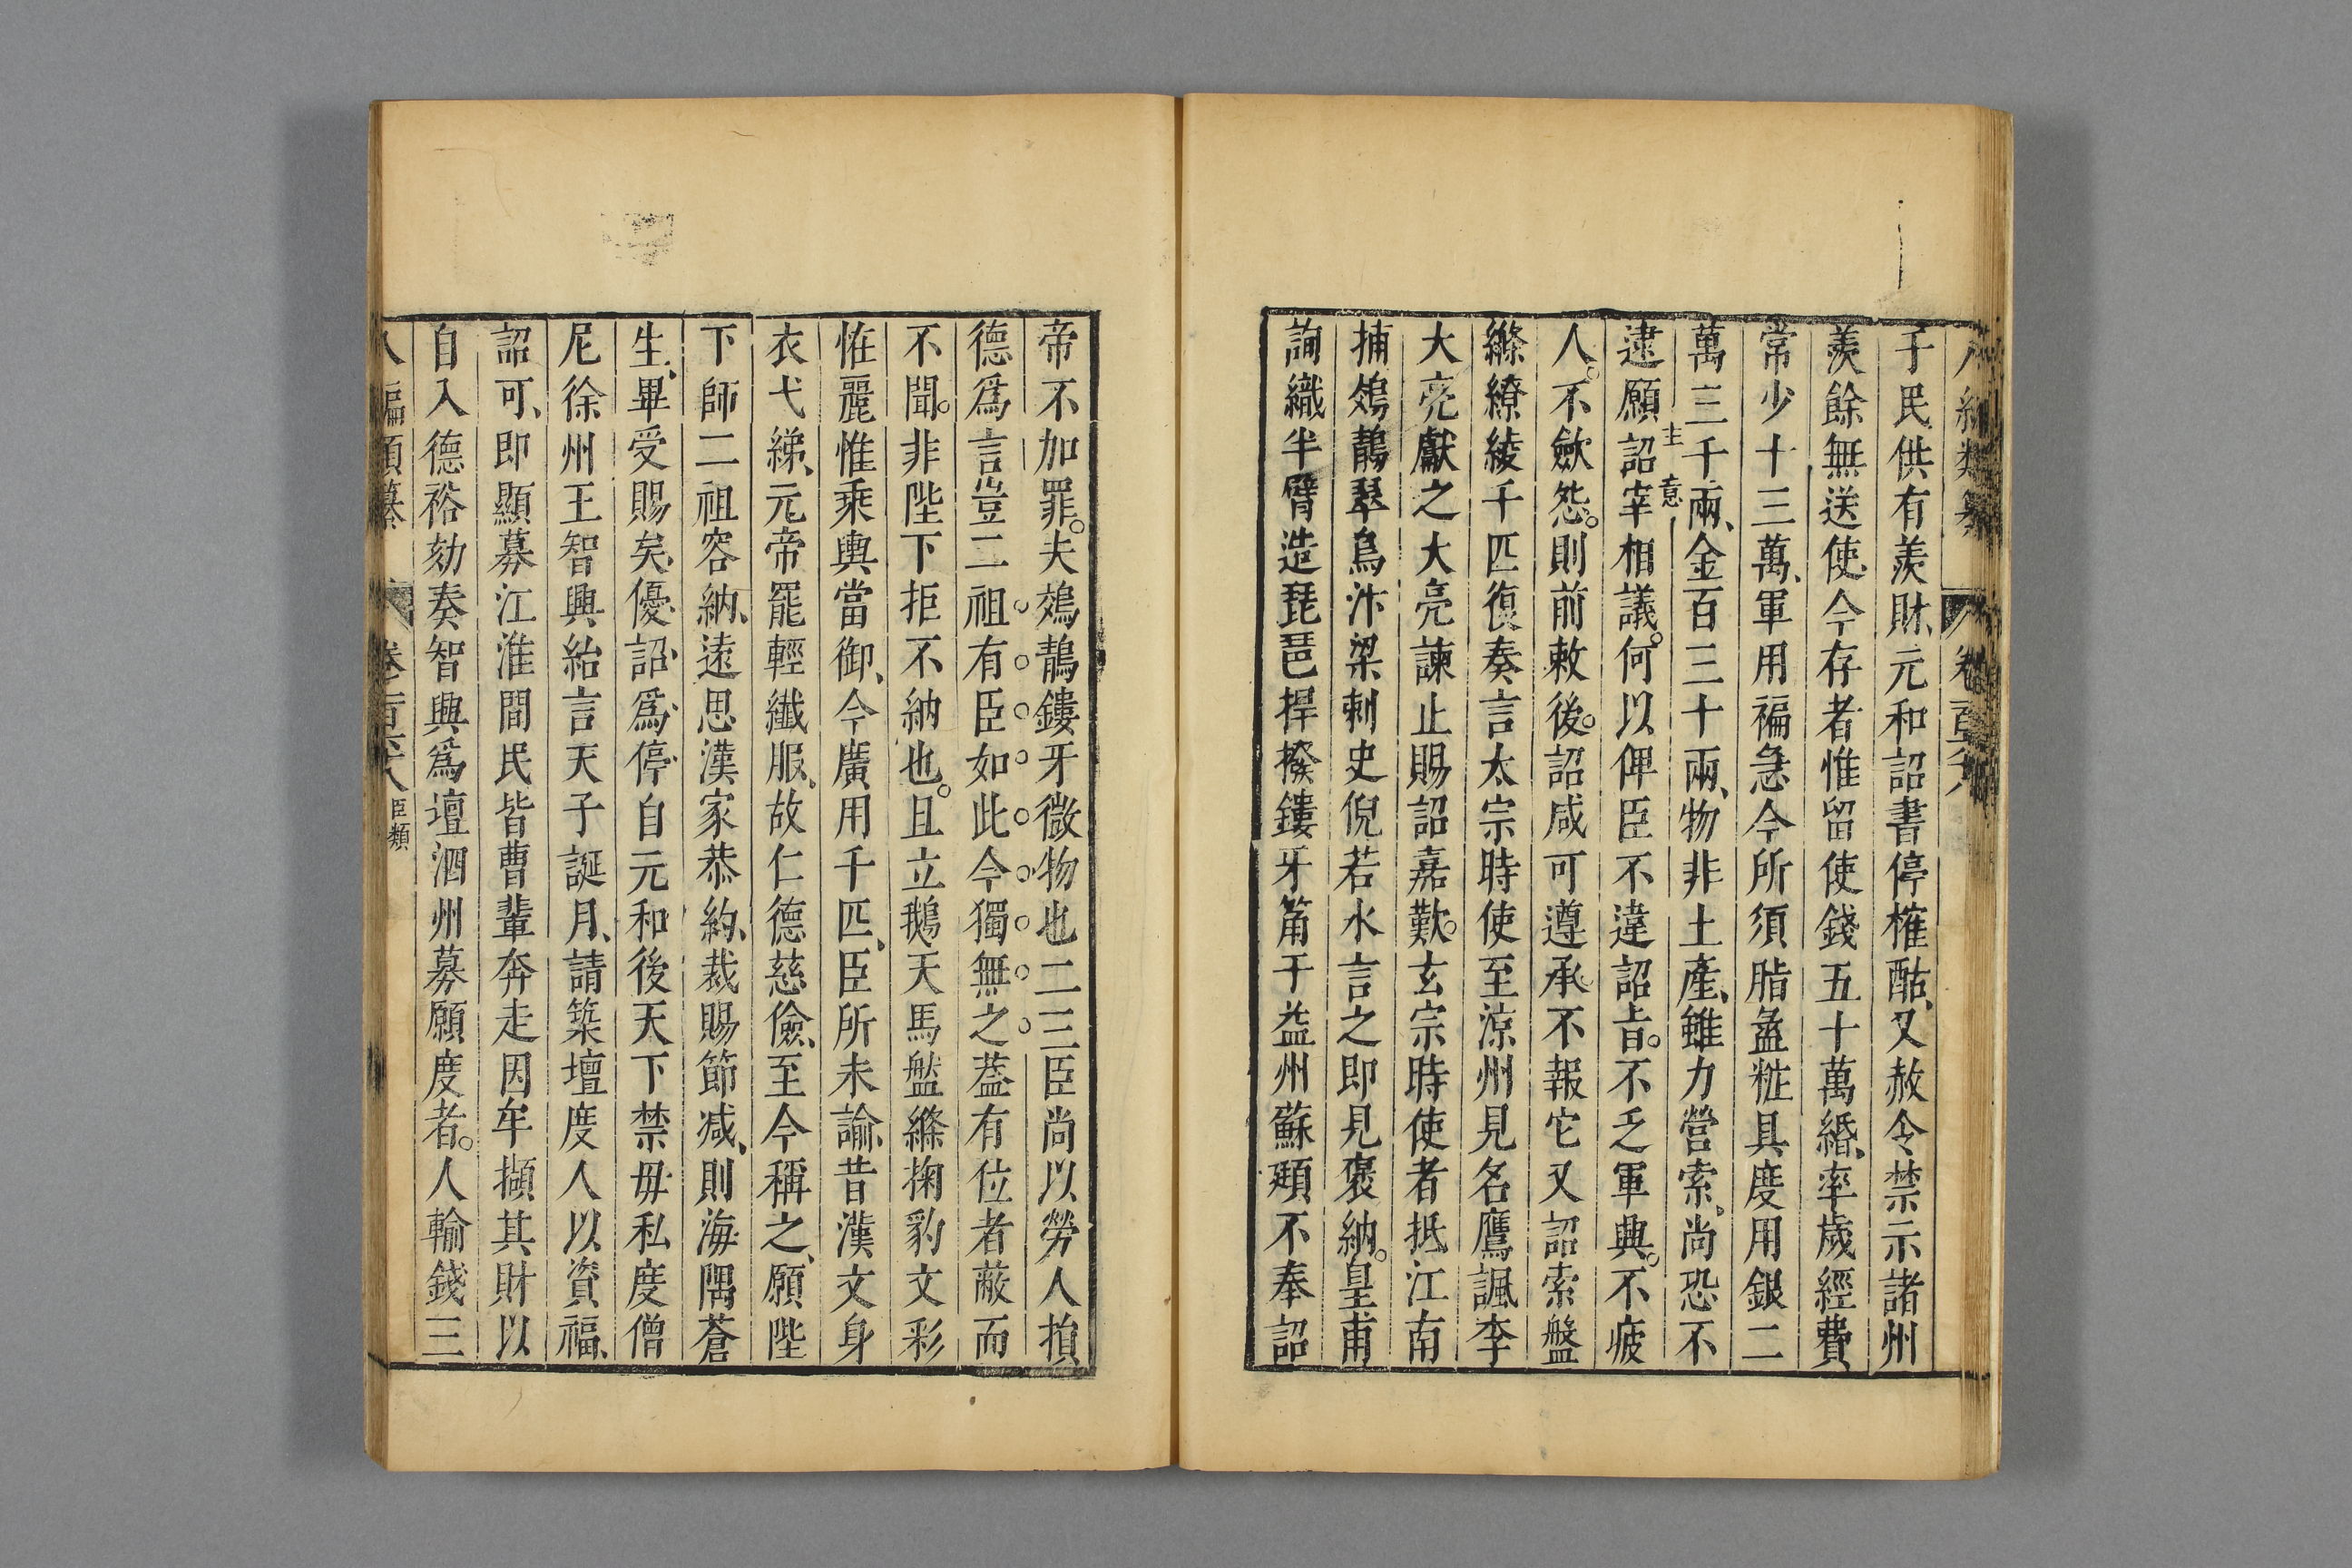 子民供有羨財、元和詔書停榷酤、又赦令禁示諸州
羨餘無送使、今存者惟留使錢五十萬緡、率歲經費
常少十三萬、軍用褊急今所須脂盝粧具度用銀二
萬三千兩、金百三十兩、物非土產、雖力營索。尚恐不
主意
逮願詔宰相議。何以俾臣不違詔旨。不乏軍典。不疲
人。不歛怨。則前敕後。詔咸可遵承不報它又詔索盤
絛繚綾千匹復奏言太宗時使至涼州見名鷹諷李
大亮獻之大亮諫止賜詔嘉歎。玄宗時使者抵江南
捕鵁鶄翠鳥汴梁刺史倪若水言之即見褒納。皇甫
詢織半臂造琵琶捍撥鏤牙筩于益州蘇頲不奉詔
帝不加罪。夫鵁鶄鏤牙微物也二三臣尚以勞人損
德爲言豈二祖有臣如此今獨無之葢有位者蔽而
不聞。非陛下拒不納也。且立鵝天馬盤絛掬豹文彩
恠麗惟乘輿當御、今廣用千匹、臣所未諭、昔漢文身
衣弋綈、元帝罷輕纖服、故仁德慈儉、至今稱之、願陛
下師二祖容納、遠思漢家恭約、裁賜節減、則海隅蒼
生、畢受賜矣、優詔爲停、自元和後天下禁毋私度僧
尼徐州王智興紿言天子誕月、請築壇度人以資福、
詔可、即顯募江淮間民皆曹輩奔走因牟擷其財以
自入德裕劾奏智興爲壇泗州募願度者。人輸錢三
八編類纂 卷一百六八 臣類